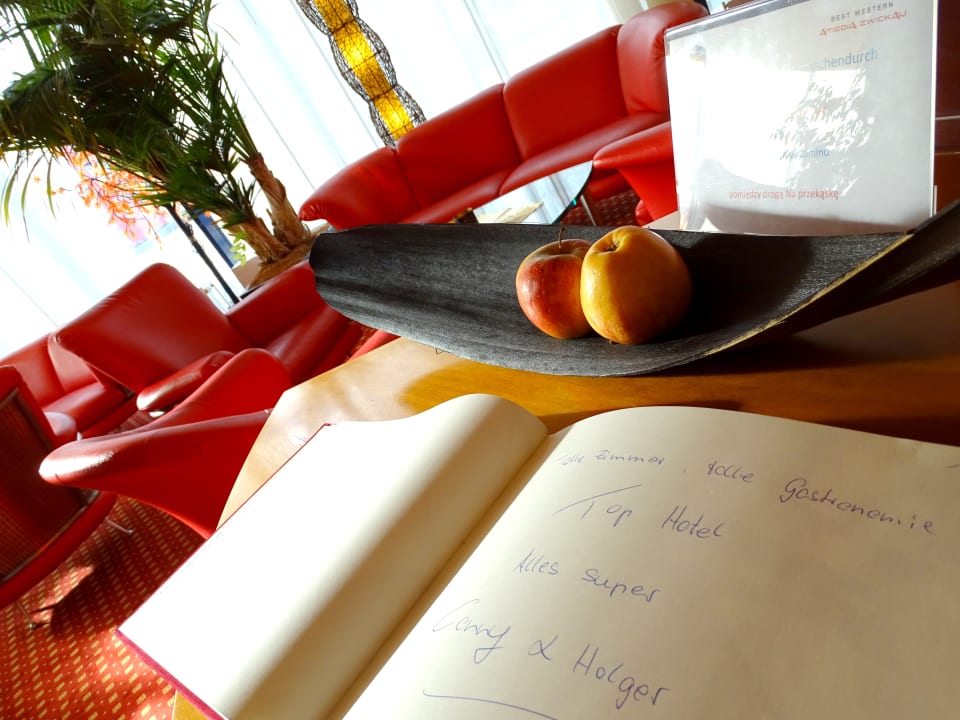 BEST WESTERN
AMEDIA ZWICKAU
zwischendurch
pomiędzy drogą Na przekąskę
tolle Zimmer, tolle Gastronomie
Top Hotel
Alles super
Conny & Holger